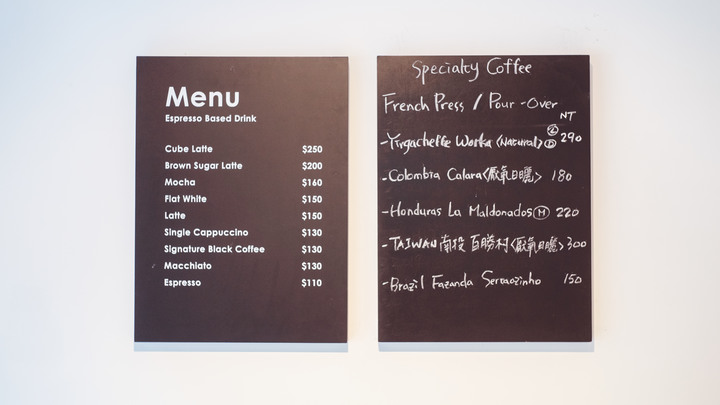 Menu
Espresso Based Drink
Cube Latte $250
Brown Sugar Latte $200
Mocha $160
Flat White $150
Latte $150
Single Cappuccino $130
Signature Black Coffee $130
Macchiato $130
Espresso $110
Specialty Coffee
French Press / Pour-Over
NT
-Yirgacheffe Worka <Natural> 290
-Colombia Calara<厭氧日曬> 180
-Honduras La Maldonados Ⓗ 220
-TAIWAN 南投 百勝村<厭氧日曬> 300
-Brazil Fazanda Serraozinho 150